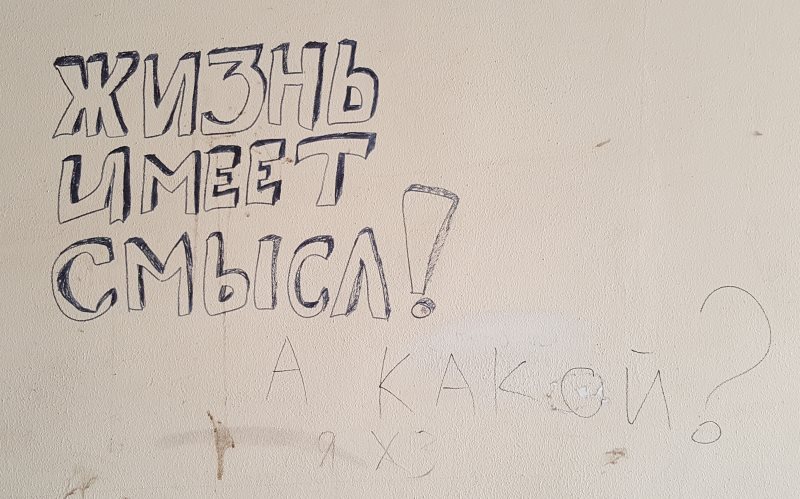 ЖИЗНЬ
ИМЕЕТ
СМЫСЛ!
А КАКОЙ?
я ХЗ